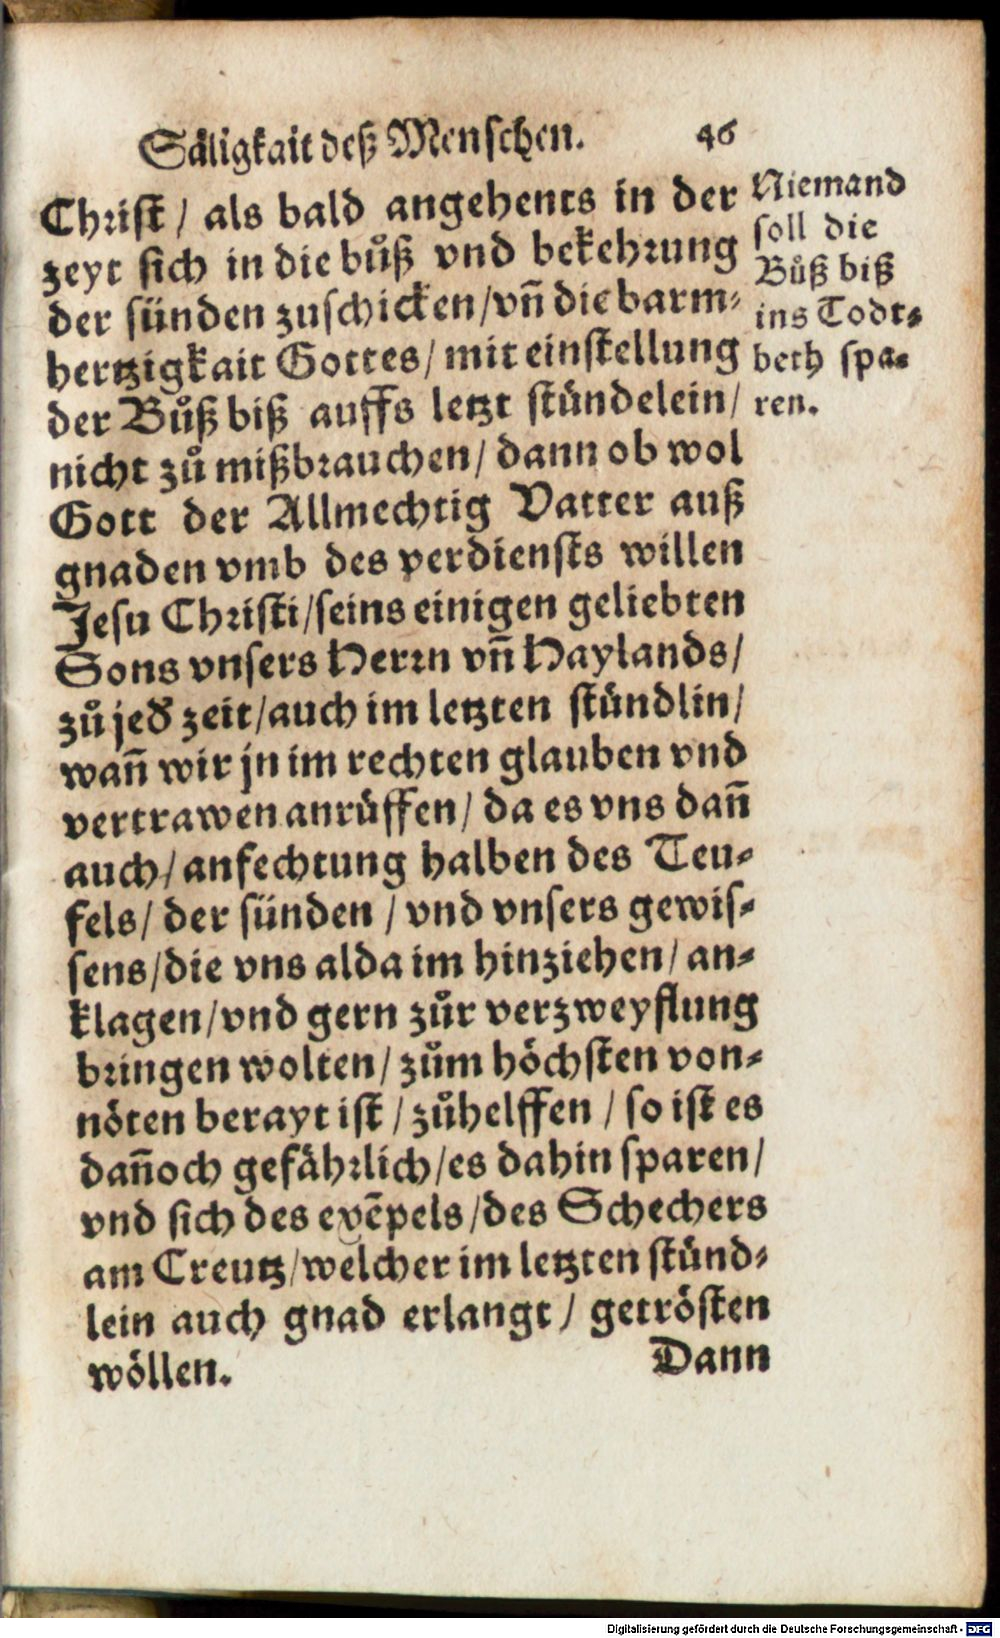 Säligkait deß Menschen. 46
Christ / als bald angehents in der
zeyt sich in die bůß vnd bekehrung
der sünden zuschicken / vn̄ die barm-
hertzigkait Gottes / mit einstellung
der Bůß biß auffs letzt stündelein /
nicht zů mißbrauchen / dann ob wol
Gott der Allmechtig Vatter auß
gnaden vmb des verdiensts willen
Jesu Christi / seins einigen geliebten
Sons vnsers Herrn vn̄ Haylands /
zů jed̕ zeit / auch im letzten stündlin /
wan̄ wir jn im rechten glauben vnd
vertrawen anrüffen / da es vns dan̄
auch / anfechtung halben des Teu-
fels / der sünden / vnd vnsers gewis-
sens / die vns alda im hinziehen / an-
klagen / vnd gern zůr verzweyflung
bringen wolten / zům höchsten von-
nöten berayt ist / zůhelffen / so ist es
dan̄och gefährlich / es dahin sparen /
vnd sich des exēpels / des Schechers
am Creutz / welcher im letzten stünd-
lein auch gnad erlangt / getrösten
wöllen. Dann
Niemand
soll die
Bůß biß
ins Todt-
beth spa-
ren.
Digitalisierung gefördert durch die Deutsche Forschungsgemeinschaft - DFG